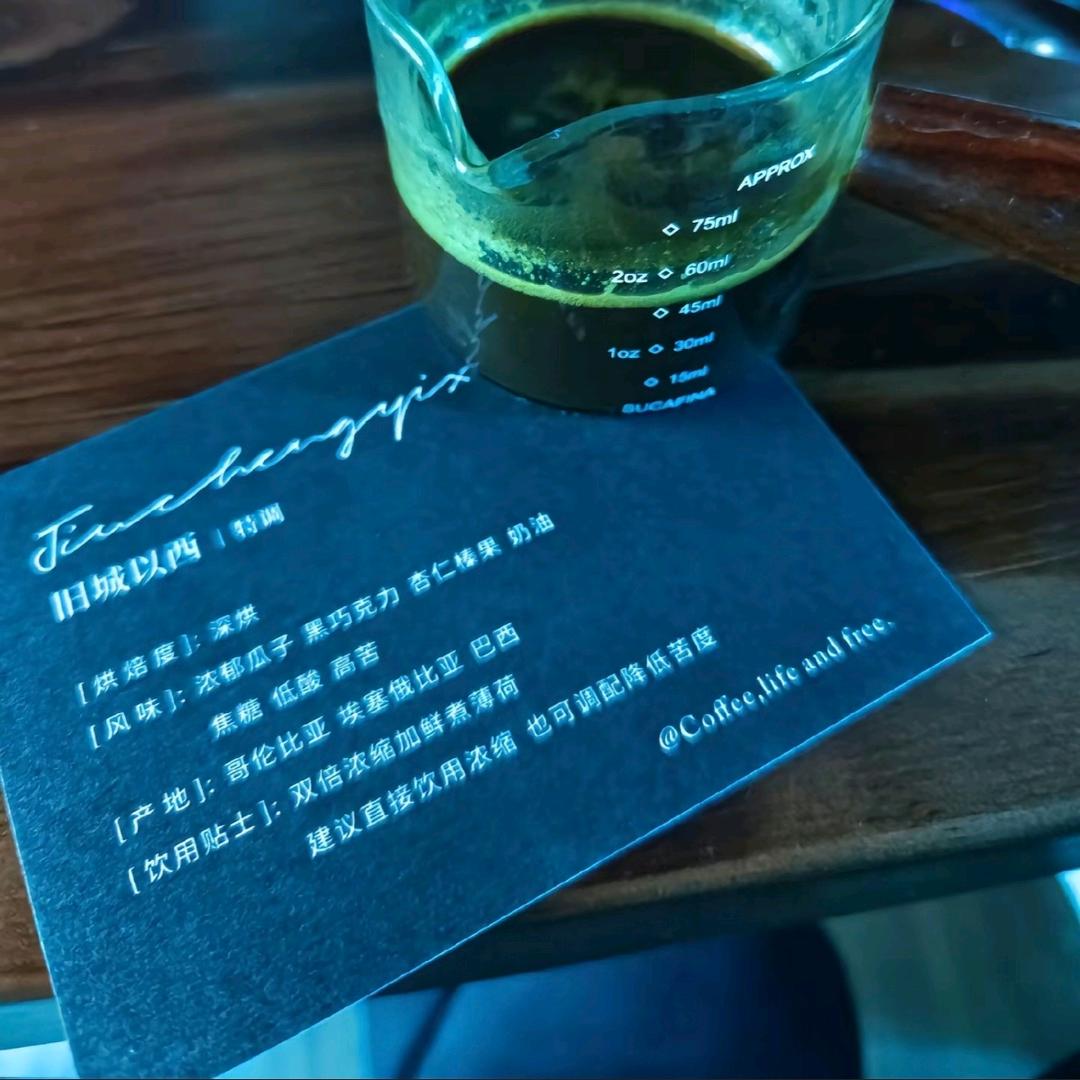 APPROX
75ml
2oz 60ml
45ml
1oz 30ml
15ml
SUCAFINA
Jiuchengyix
旧城以西 | 特调
[烘焙度]: 深烘
[风味]: 浓郁瓜子 黑巧克力 杏仁榛果 奶油
焦糖 低酸 高苦
[产地]: 哥伦比亚 埃塞俄比亚 巴西
[饮用贴士]: 双倍浓缩加鲜煮薄荷
建议直接饮用浓缩 也可调配降低苦度
@Coffee,life and free.